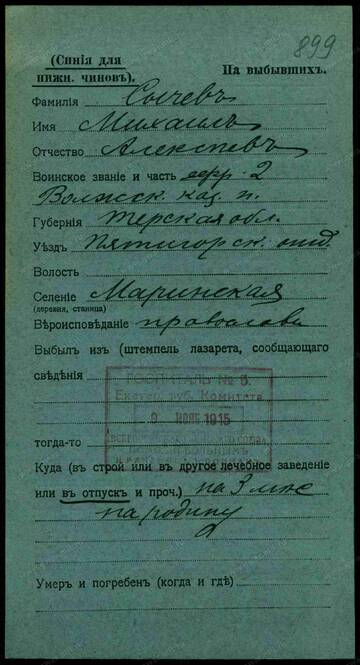 899
(Синія для
нижн. чиновъ).
На выбывшихъ.
Фамилія Сычевъ
Имя Михаилъ
Отчество Алексѣевъ
Воинское званіе и часть ефр. 2
Волжск. каз. п.
Губернія Терская обл.
Уѣздъ Пятигорск. отд.
Волость
Селеніе Маринская
(деревня, станица)
Вѣроисповѣданіе православн
Выбылъ изъ (штемпель лазарета, сообщающаго
свѣдѣнія
ГОСПИТАЛЬ № 5.
Екатер. губ. Комитета
9 1915
БОЛЬНЫМЪ
тогда-то
Куда (въ строй или въ другое лечебное заведеніе
или въ отпускъ и проч.) на 3 мѣс
на родину
Умеръ и погребенъ (когда и гдѣ)